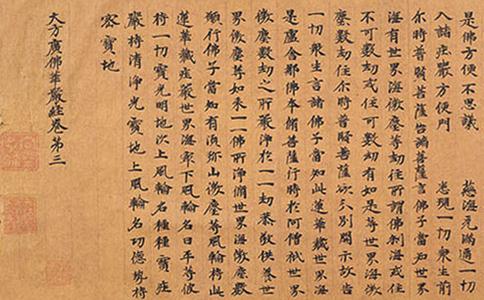 是佛方便不思議　　慈海充滿適一切
入諸庄嚴方便門　　悉現一切衆生前
尒時普賢菩薩告諸菩薩言佛子當知世界
海有世界海微塵等劫住所謂佛刹海或住
不可數劫或住可數劫有如是等世界海微
塵數劫住尒時普賢菩薩欲分別開示故告
一切衆生言諸佛子當知此蓮華藏世界海
是盧舍那佛本脩菩薩行時於阿僧祇世界
微塵數劫之所嚴淨於一一劫恭敬供養世
界微塵等如來一一佛所淨脩世界海微塵數
願行佛子當知有湏弥山微塵等風輪持此
蓮華藏莊嚴世界海冣下風輪名曰平等彼
持一切寶光明地次上風輪名種種寶莊
嚴持清淨光寶地上風輪名功德勢持
密寶地
大方廣佛華嚴經卷第三